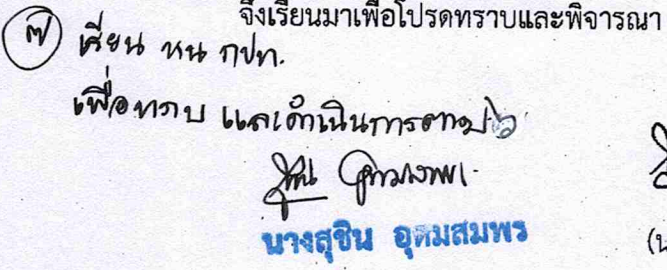 จึงเรียนมาเพื่อโปรดทราบและพิจารณา
๗ เรียน หน กปท.
เพื่อทราบ และดำเนินการตาม ๖
นางสุชิน อุดมสมพร
(น